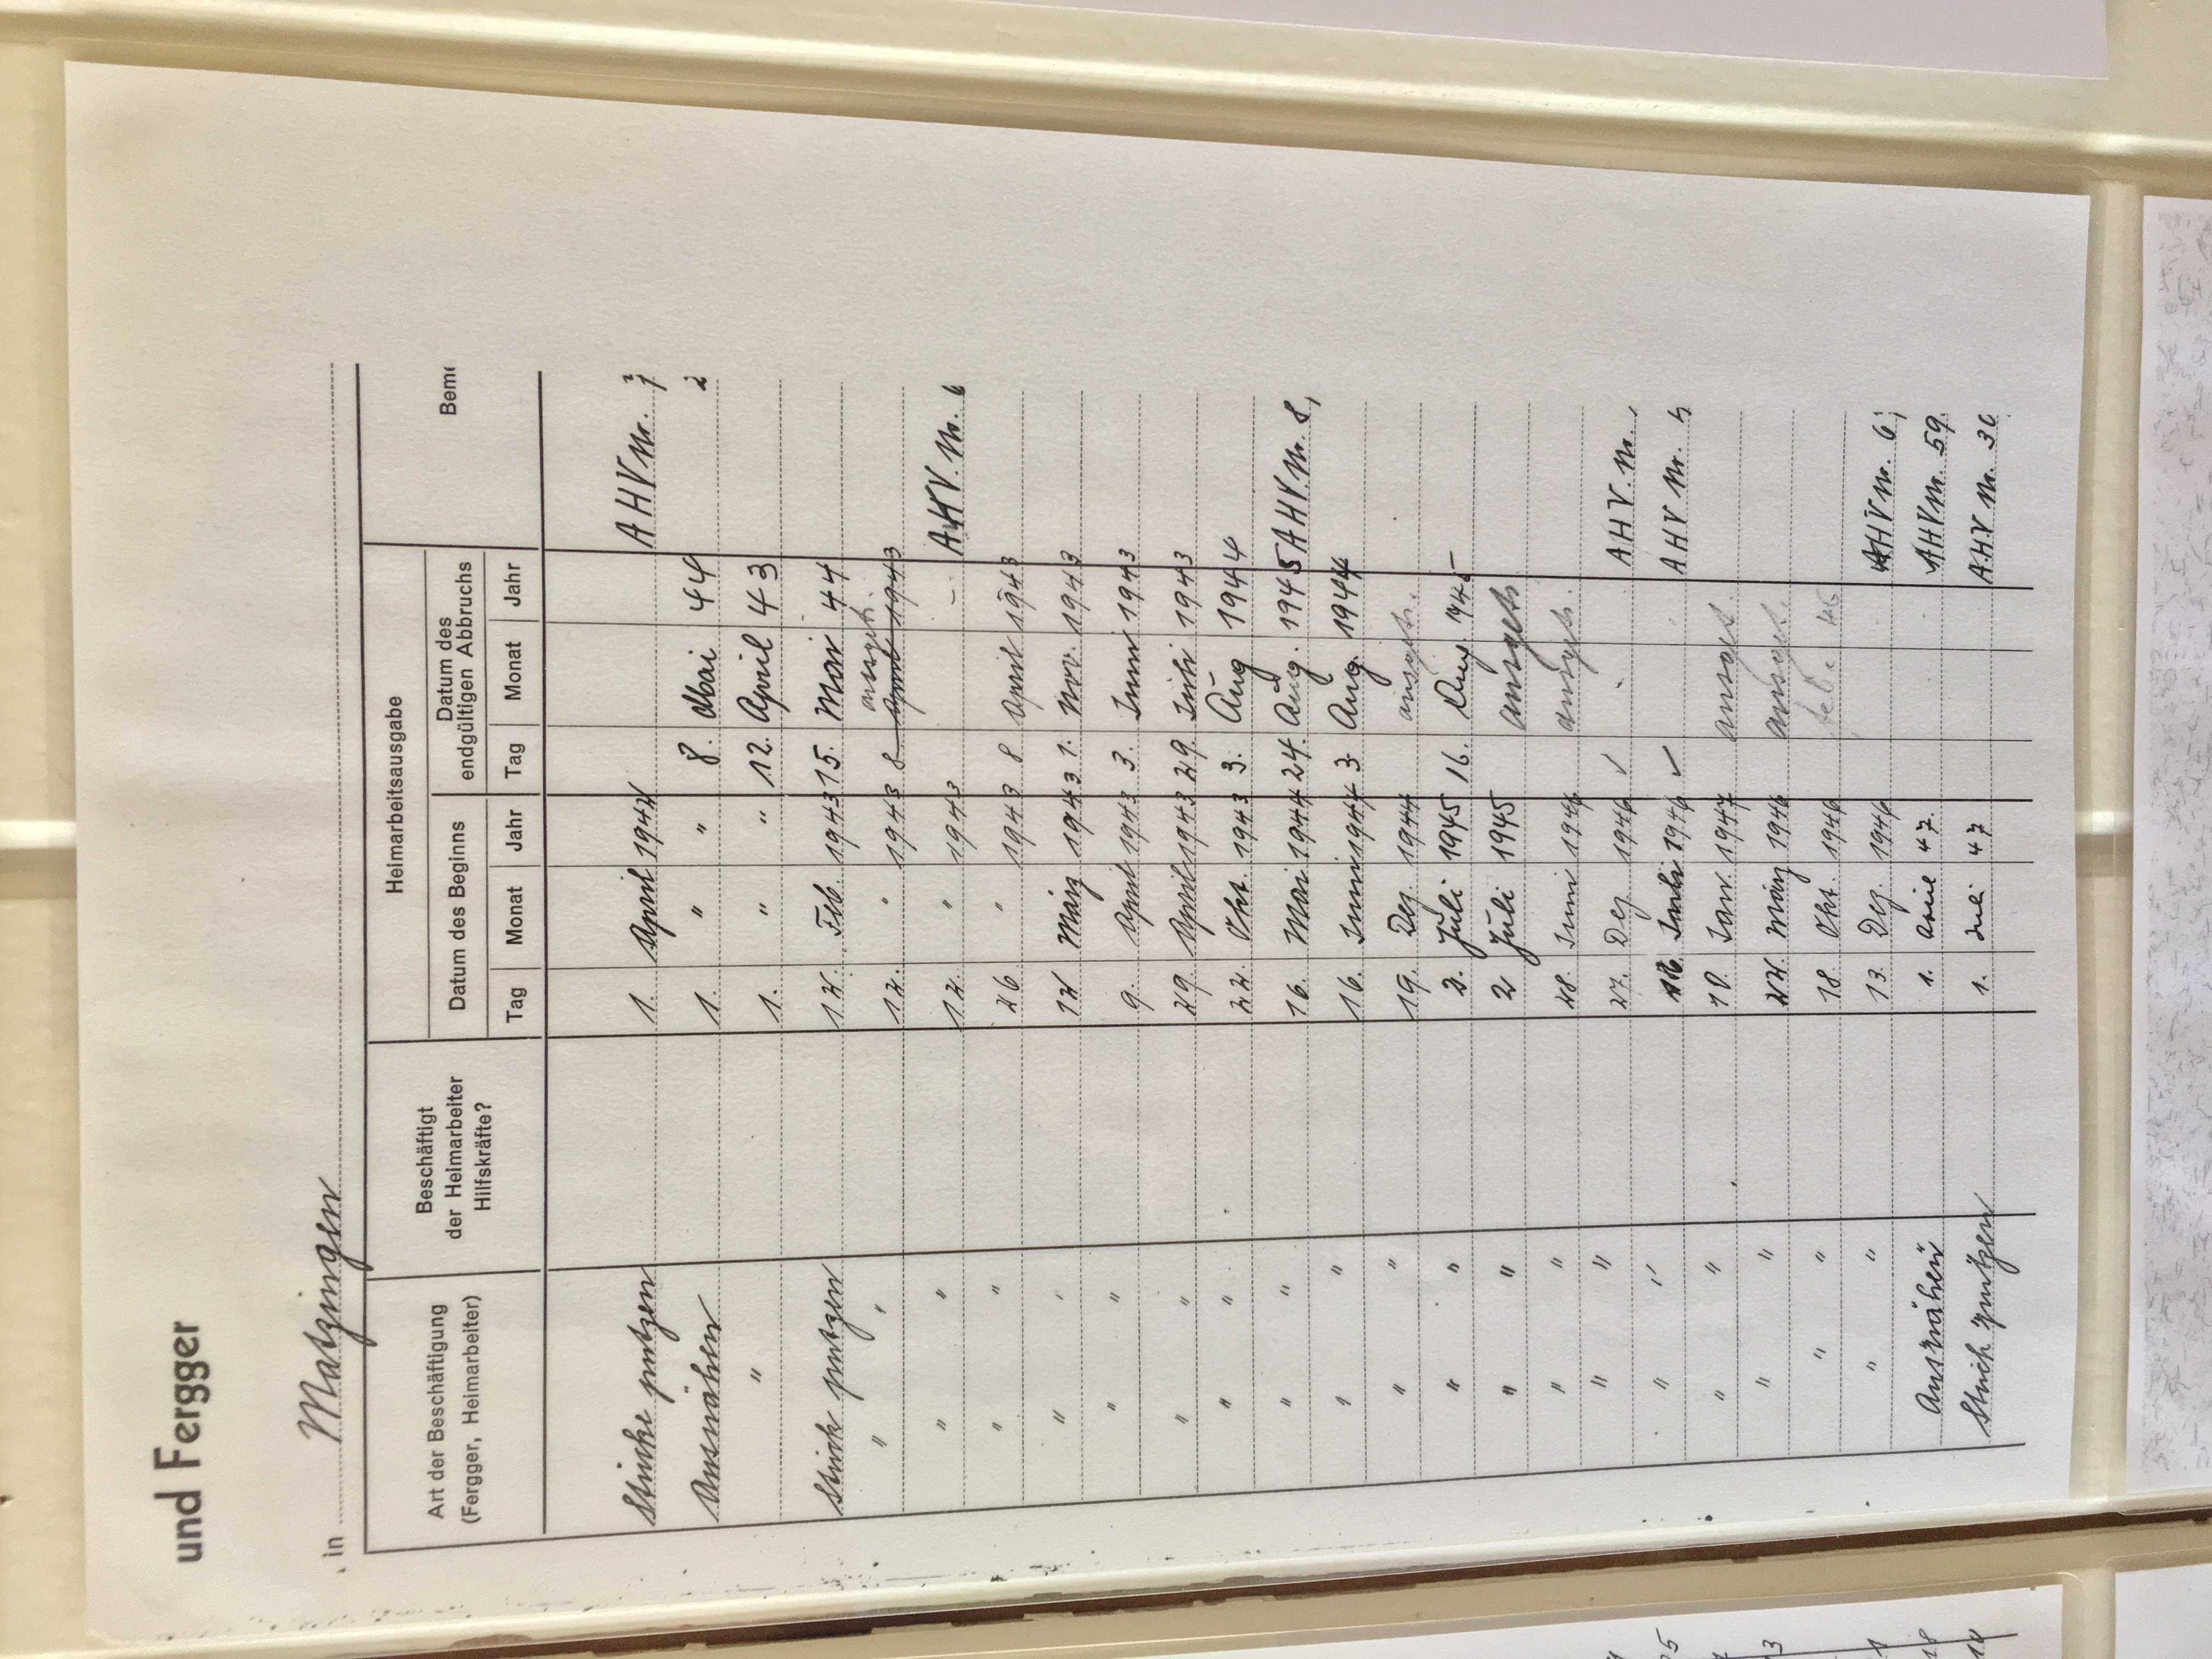 und Fergger
, in Matzingen
Heimarbeitsausgabe
Art der Beschäftigung
(Fergger, Heimarbeiter)
Beschäftigt
der Heimarbeiter
Hilfskräfte?
Datum des Beginns
Datum des
endgültigen Abbruchs
Bem
Tag Monat Jahr Tag Monat Jahr
1. April 1942 AHV Nr.
Ausnähen 1. " " 8. Mai 44 2
" 1. " " 12. April 43
putzen 12. Feb. 1943 15. Mai 44
" " 12. " 1943 8 April 1943
" " 12. " 1943 AHV. Nr. 6
" " 26. " 1943 8 April 1943
" " 12 März 1943 1. Nov. 1943
" " 9. April 1943 3. Juni 1943
" " 29. April 1943 29. Juli 1943
" " 22. Okt. 1943 3. Aug 1944
" " 16. Mai 1944 24. Aug. 1945 AHV. Nr. 8,
" " 16. Juni 1944 3. Aug. 1944
" " 19. Dez. 1944 ausgetr.
" " 2. Juli 1945 16. Aug. 1945
" " 2 Juli 1945
" " 28. Juni 1946
" " 27. Dez. 1946 ✓ AHV. Nr.
" " 16. Juli 1946 ✓ AHV Nr. 5
" " 18. Jan. 1947
" " 22. März 1946
" " 18. Okt. 1946 Feb. 46
" " 13. Dez. 1946 AHV Nr. 6
Ausnähen 1. 47. AHV Nr. 59.
Stück putzen 1. Juli 47 AHV Nr. 36